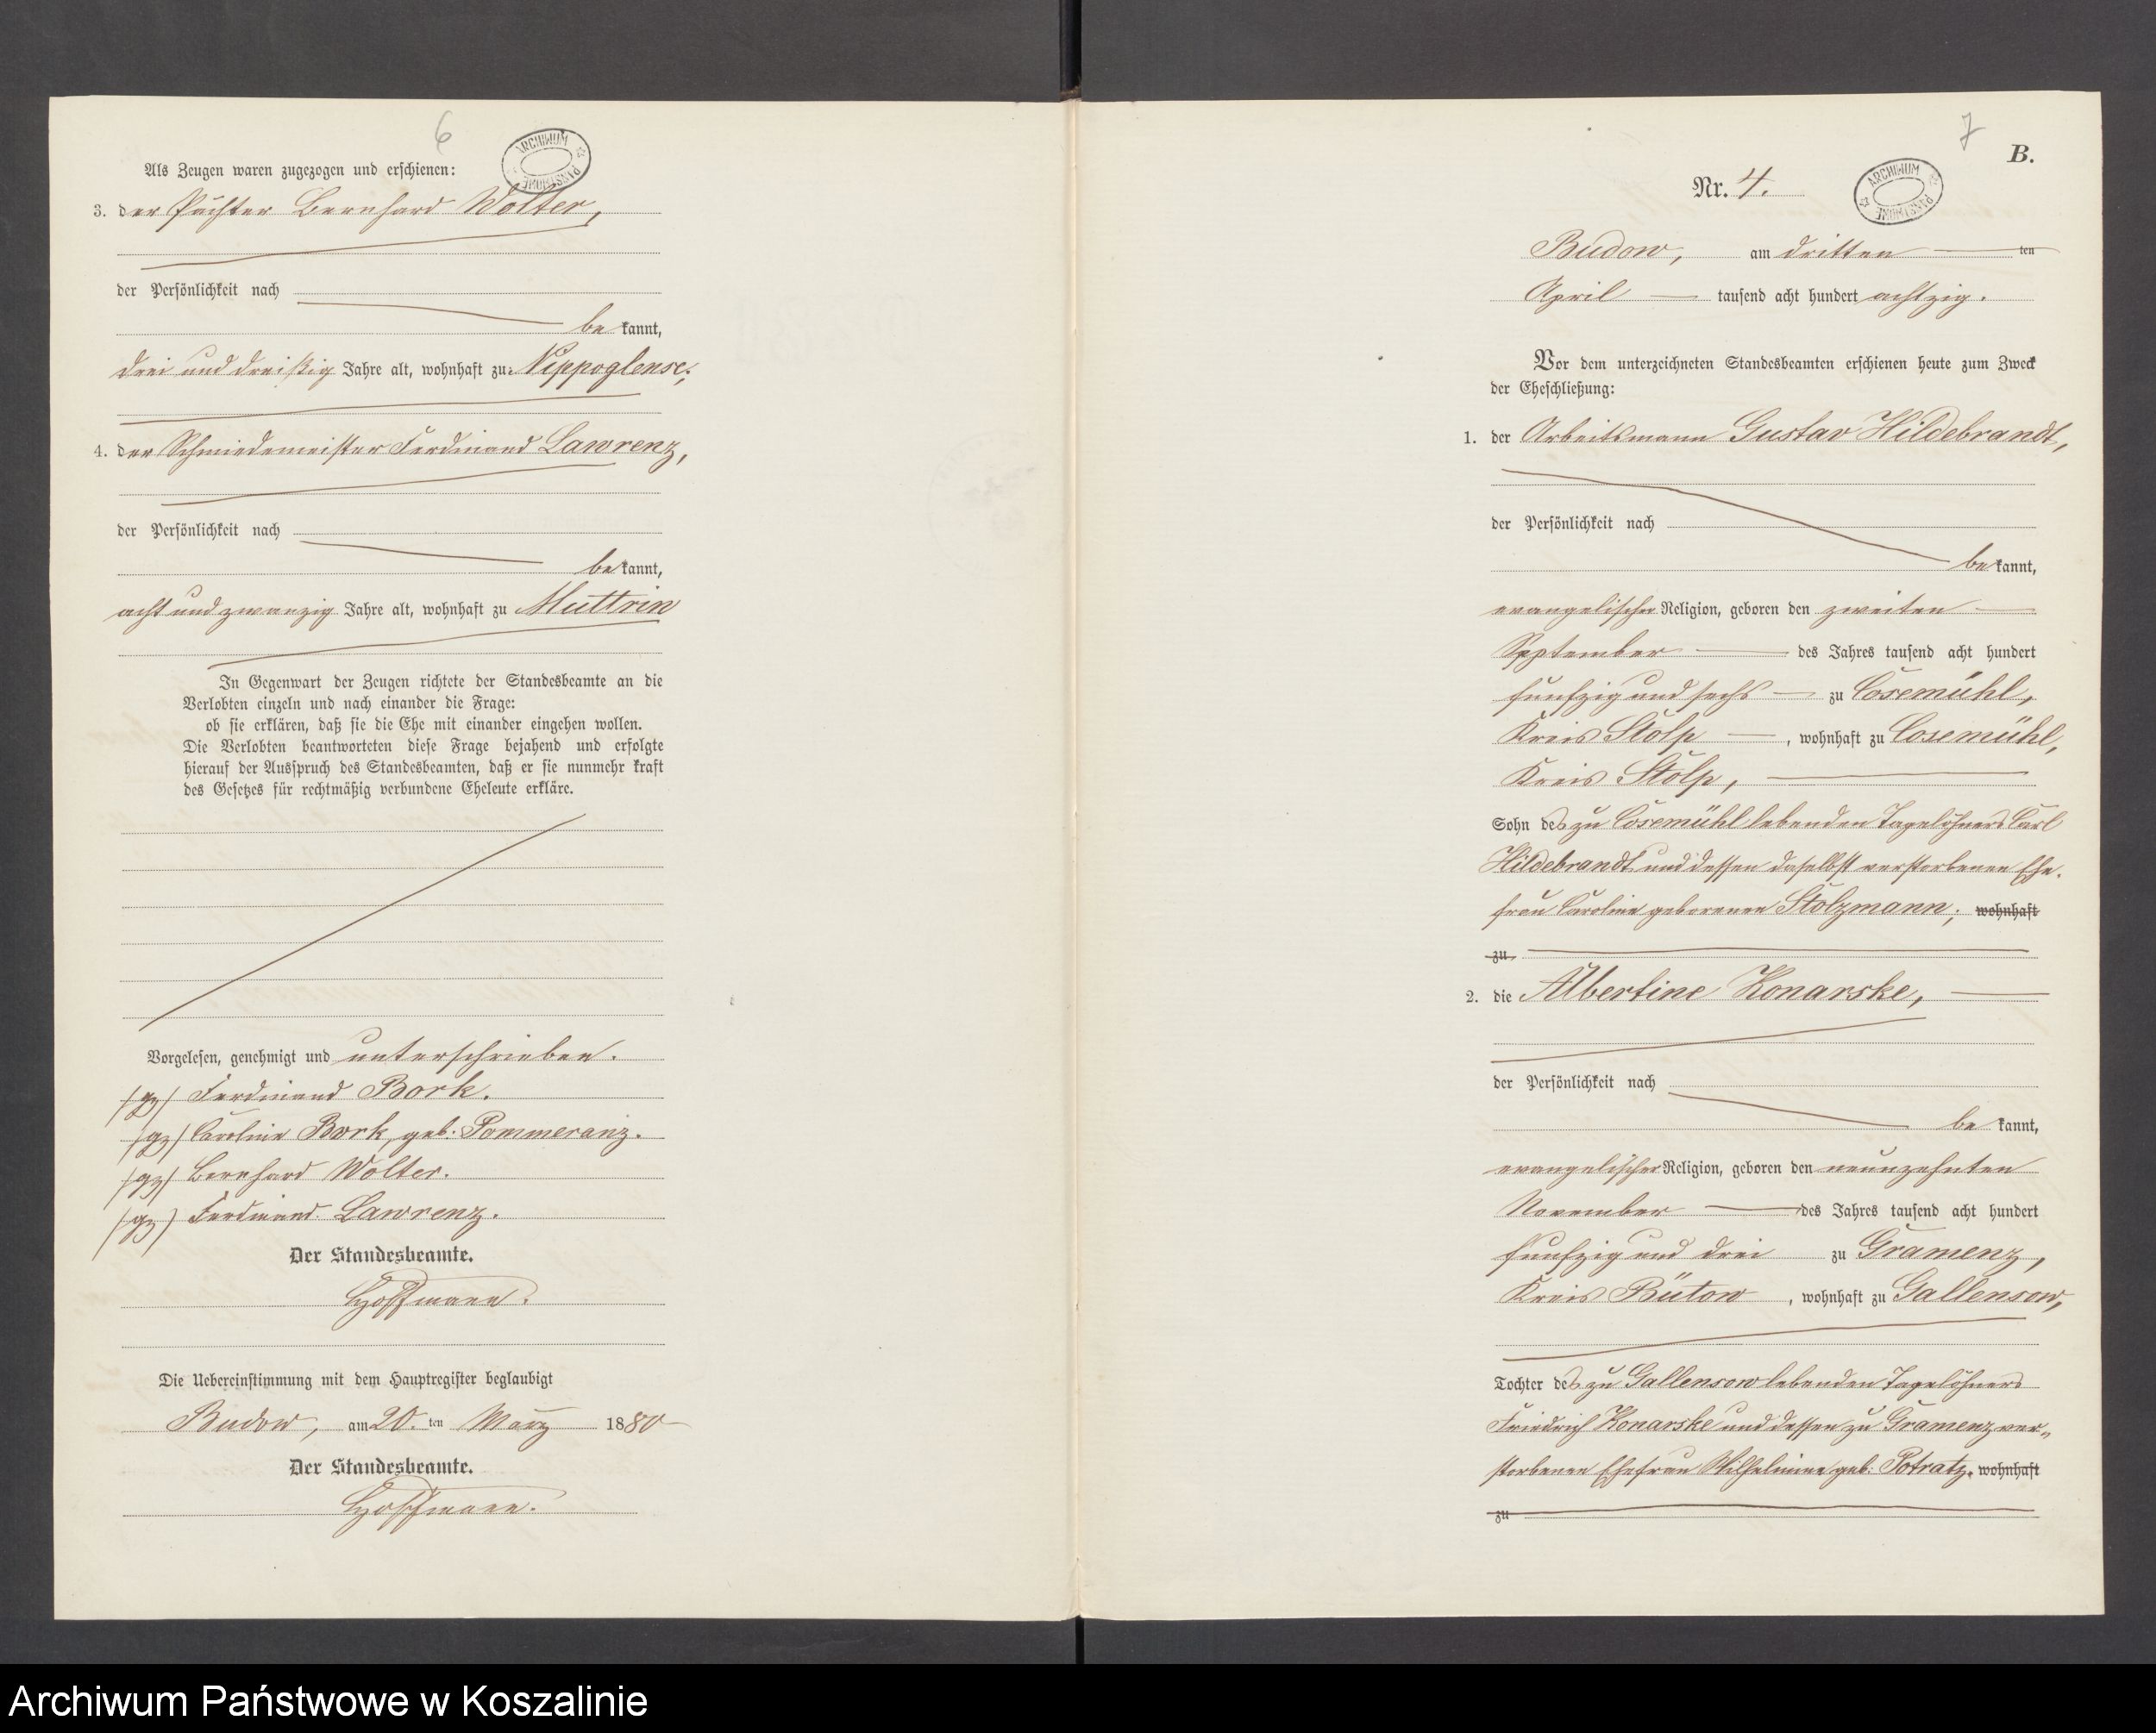 6
ARCHIWUM PAŃSTWOWE
Als Zeugen waren zugezogen und erschienen:
3. der Pächter Bernhard Wolter,
der Persönlichkeit nach
be kannt,
drei und dreißig Jahre alt, wohnhaft zu: Nippoglense;
4. der Schmiedemeister Ferdinand Lawrenz,
der Persönlichkeit nach
be kannt,
acht und zwanzig Jahre alt, wohnhaft zu Muttrin
In Gegenwart der Zeugen richtete der Standesbeamte an die
Verlobten einzeln und nach einander die Frage:
ob sie erklären, daß sie die Ehe mit einander eingehen wollen.
Die Verlobten beantworteten diese Frage bejahend und erfolgte
hierauf der Ausspruch des Standesbeamten, daß er sie nunmehr kraft
des Gesetzes für rechtmäßig verbundene Eheleute erkläre.
Vorgelesen, genehmigt und unterschrieben.
/gz/ Ferdinand Bork.
/gz/ Caroline Bork, geb. Pommeranz.
/gz/ Bernhard Wolter.
/gz/ Ferdinand Lawrenz.
Der Standesbeamte.
Hoffmann.
Die Uebereinstimmung mit dem Hauptregister beglaubigt
Budow, am 20. ten März 1880
Der Standesbeamte.
Hoffmann.
7
B.
Nr. 4.
ARCHIWUM PAŃSTWOWE
Budow, am dritten ten
April tausend acht hundert achtzig.
Vor dem unterzeichneten Standesbeamten erschienen heute zum Zweck
der Eheschließung:
1. der Arbeitsmann Gustav Hildebrandt,
der Persönlichkeit nach
be kannt,
evangelischer Religion, geboren den zweiten
September des Jahres tausend acht hundert
funfzig und sechs zu Cosemühl,
Kreis Stolp, wohnhaft zu Cosemühl,
Kreis Stolp,
Sohn des zu Cosemühl lebenden Tagelöhners Carl
Hildebrandt und dessen daselbst verstorbenen Ehe-
frau Caroline geborenen Stolzmann; wohnhaft
zu
2. die Albertine Konarske,
der Persönlichkeit nach
be kannt,
evangelischer Religion, geboren den neunzehnten
November des Jahres tausend acht hundert
funfzig und drei zu Gramenz,
Kreis Bütow, wohnhaft zu Gallensow,
Tochter des zu Gallensow lebenden Tagelöhners
Friedrich Konarske und dessen zu Gramenz ver-
storbenen Ehefrau Wilhelmine geb. Potratz. wohnhaft
zu
Archiwum Państwowe w Koszalinie